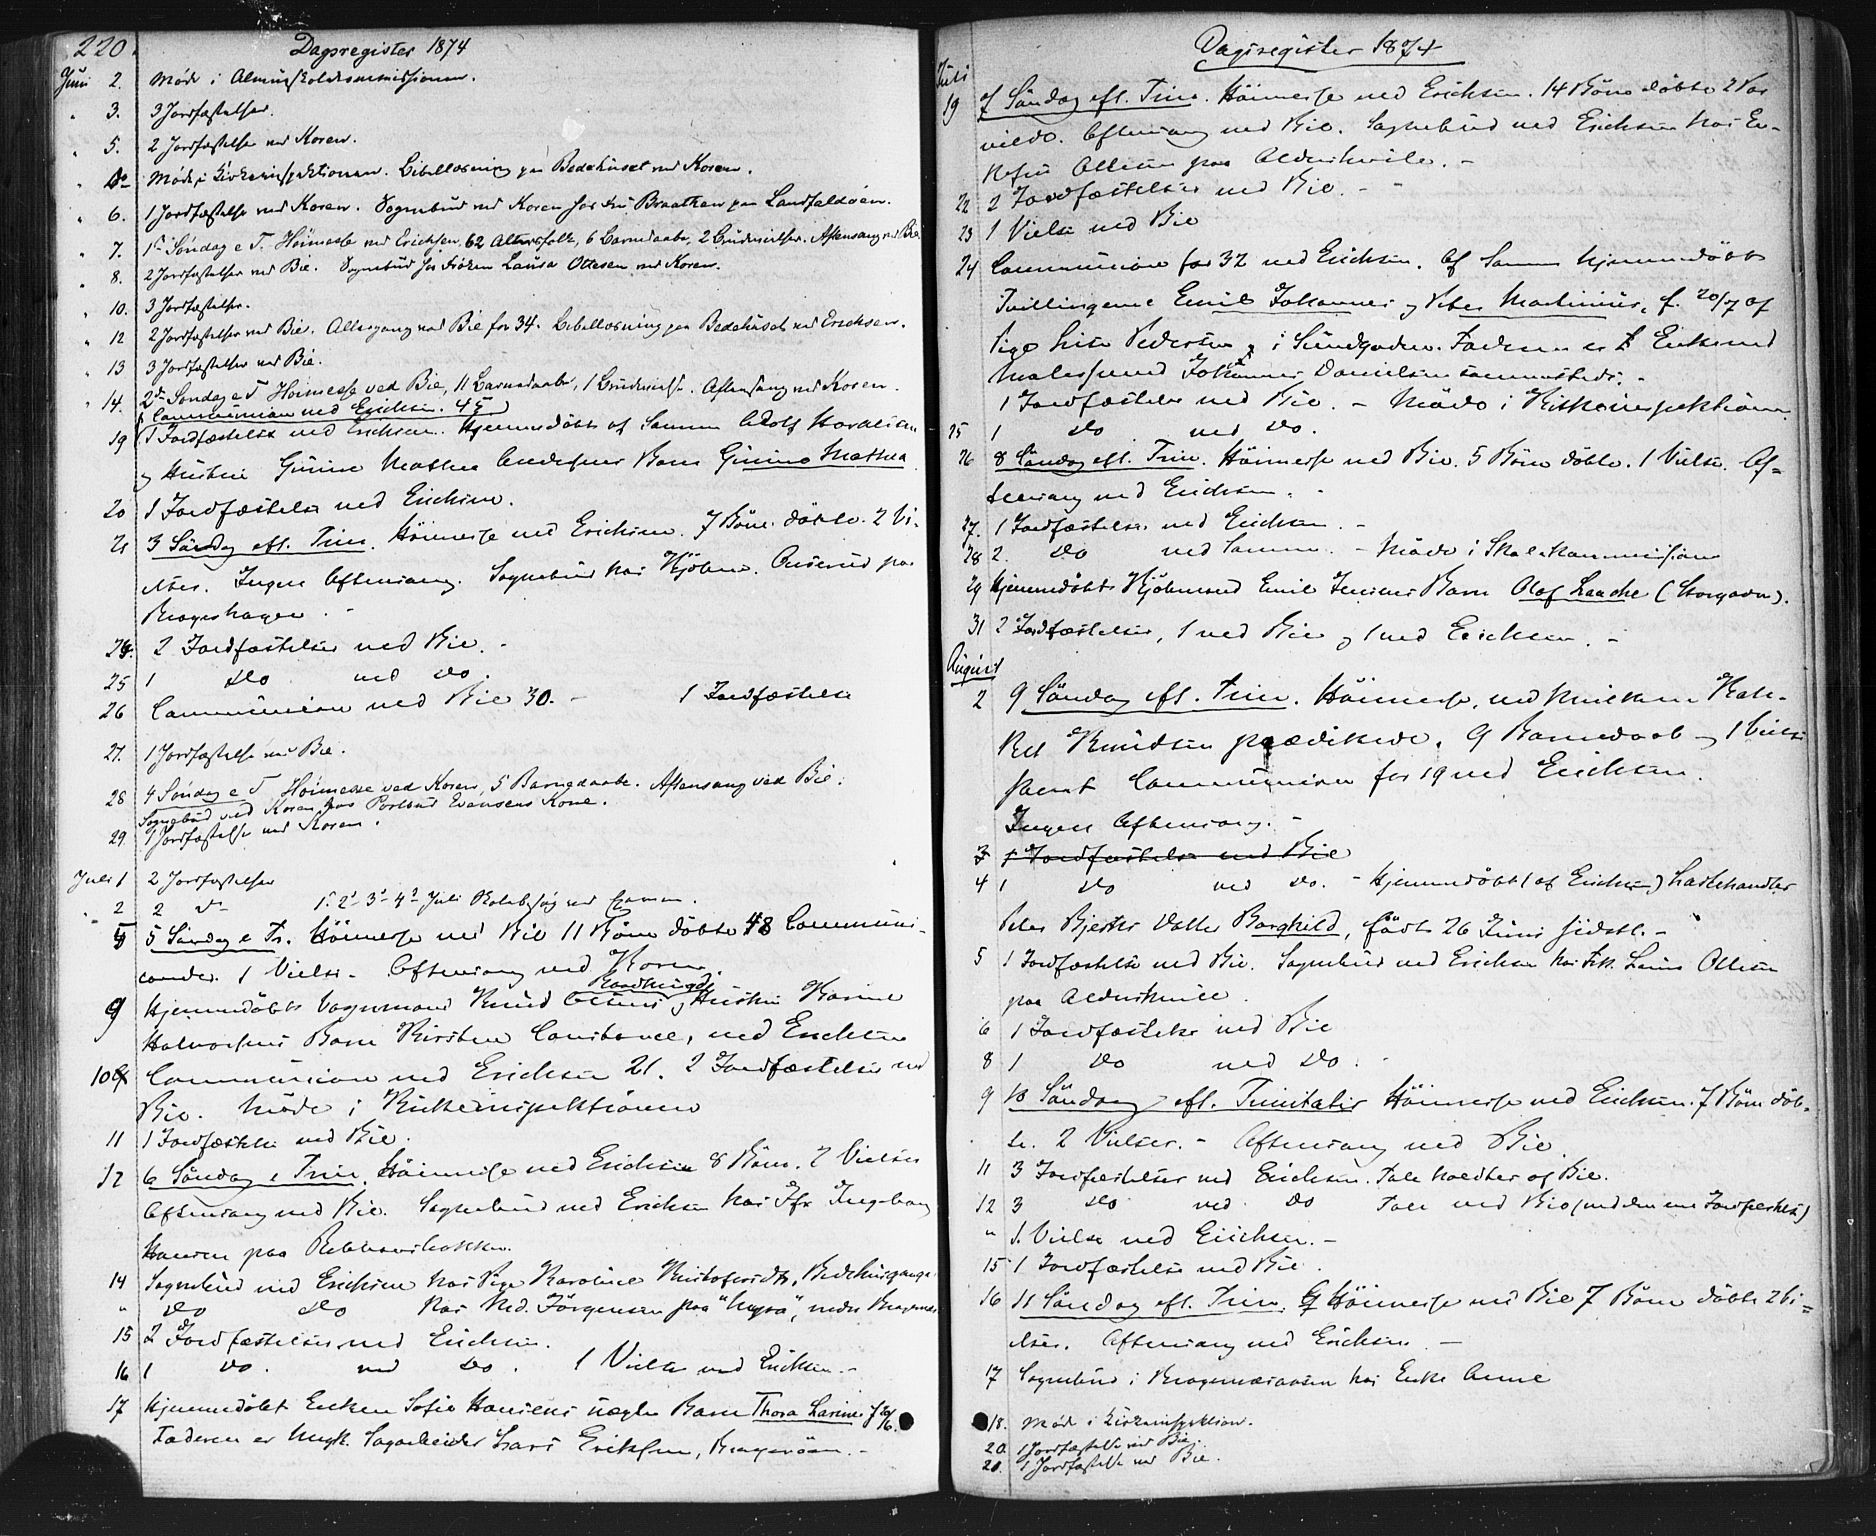 220.
Dagsregister 1874
Juni 2. Møde i Almueskolekommissionen.
" 3. 3 Jordfæstelser.
" 5. 2 Jordfæstelser ved Koren.
" Do Møde i Kirkeinspektionen. Bibellæsning paa Bedehuset ved Koren.
" 6. 1 Jordfæstelse ved Koren. Sognebud ved Koren hos Braathen paa Landfaldøen.
" 7. 1ste Søndag e T. Høimesse ved Erichsen, 62 Altersfolk, 6 Barnedaabe, 2 Brudevielser. Aftensang ved Bie
" 8. 2 Jordfæstelser ved Bie. Sognebud hos Frøken Laura Ottesen ved Koren.
" 10. 3 Jordfæstelser.
" 12 2 Jordfæstelser ved Bie. Altergang ved Bie for 34. Bibellæsning paa Bedehuset ved Erichsen.
" 13 3 Jordfæstelser ved Bie.
" 14. 2den Søndag e T Høimesse ved Bie, 11 Barnedaabe, 1 Brudevielse. Aftensang ved Koren.
Communion ved Erichsen. 45
19 1 Jordfæstelse ved Erichsen. Hjemmedøbt af Samme Adolf
og Hustru Gurine Mathea Barn Gurine Mathea
20 1 Jordfæstelse ved Erichsen.
21 3 Søndag eft. Trin. Høimesse ved Erichsen. 7 Børn døbte. 2 Vi-
elser. Ingen Aftensang. Sognebud hos Kjøbm. paa
Bragerhagen. -
24. 2 Jordfæstelser ved Bie. -
25 1 do ved do.
26 Communion ved Bie 30. - 1 Jordfæstelse
27. 1 Jordfæstelse ved Bie.
28 4 Søndag e T Høimesse ved Koren, 5 Barnedaabe. Aftensang ved Bie.
Sognebud ved Koren hos Postbud Evensens Kone.
29. 1 Jordfæstelse ved Koren.
Juli 1 2 Jordfæstelser
" 2 2 do 1. 2. 3. 4de Juli Skolebesøg ved Examen.
5 5 Søndag e Tr. Høimesse ved Bie 11 Børn døbte 48 Communi-
cander. 1 Vielse - Aftensang ved Koren.
9 Hjemmedøbt Vognmand Knud Hustru Karine
Halvorsens Barn Kirstine Constance, ved Erichsen
10 Communion ved Erichsen 21. 2 Jordfæstelser ved
Bie. Møde i Kirkeinspektionen
11 1 Jordfæstelse ved Bie.
12 6 Søndag e Trin. Høimesse ved Erichsen 8 Børn. 2 Vielser
Aftensang ved Bie. Sognebud ved Erichsen hos Jfr Ingeborg
Hansen paa
14 Sognebud ved Erichsen hos Pige Karoline
" do do hos Jørgensen paa "Mysa", nedre
15 2 Jordfæstelser ved Erichsen.
16 1 do. ved do. 1 Vielse ved Erichsen. -
17 Hjemmedøbt Enken Sofie Hansens uægte Barn Thora Larine
Faderen er Lars Eriksen, Bragerøen. -
Dagsregister 1874
Juli
19 7 Søndag eft. Trin. Høimesse ved Erichsen. 14 Børn døbte 2 Par
viede. Aftensang ved Bie. Sognebud ved Erichsen hos En-
kefru Ottesen paa Aldershvile. -
22 2 Jordfæstelser ved Bie. -
23 1 Vielse ved Bie
24 Communion for 32 ved Erichsen. Af Samme hjemmedøbt
Tvillingerne Emil Johannes og Peter Martinius, f. 20/7 af
Pige Lise Pedersen, i Sundgaden. Faderen er Enkemand
Malersvend Johannes Danielsen sammesteds. -
1 Jordfæstelse ved Bie. - Møde i Kirkeinspektionen
25 1 do ved do.
26 8 Søndag eft. Trin. Høimesse ved Bie. 5 Børn døbte. 1 Vielse. Af-
tensang ved Erichsen. -
27. 1 Jordfæstelse ved Erichsen. -
28 2. do ved Samme. - Møde i Skolekommissionen
29 Hjemmedøbt Kjøbmand Emil Jensens Barn Olaf Laache (Storgaden).
31 2 Jordfæstelser, 1 ved Bie og 1 ved Erichsen. -
August
2 9 Søndag eft. Trin. Høimesse, ved hvilken
Knudsen prædikede. 9 Barnedaab og 1 Vielse
samt Communion for 19 ved Erichsen.
Ingen Aftensang. -
3 1 Jordfæstelse ved Bie
4 1 do ved do. - Hjemmedøbt (af Erichsen)
Peter Datter Borghild, født 26 Juni sidstl. -
5 1 Jordfæstelse ved Bie. Sognebud ved Erichsen hos Frk. Laura Ottesen
paa Aldershvile.
6 1 Jordfæstelse ved Bie
8 1 do ved do.
9 10 Søndag eft. Trinitatis Høimesse ved Erichsen. 7 Børn døb-
te. 2 Vielser. - Aftensang ved Bie.
11 3 Jordfæstelser ved Erichsen. Tale holdtes af Bie.
12 3 do ved do Tale ved Bie (ved den ene Jordfæstelse)
" 1. Vielse ved Erichsen. -
15 1 Jordfæstelse ved Bie.
16 11 Søndag eft. Trin. Høimesse ved Bie 7 Børn døbte 2 Vi-
elser. Aftensang ved Erichsen. -
17 Sognebud i Bragernæsaasen hos Enke Anne
18. Møde i Kirkeinspektion.
20. 1 Jordfæstelse ved Bie.
20. 1 Jordfæstelse ved Bie.